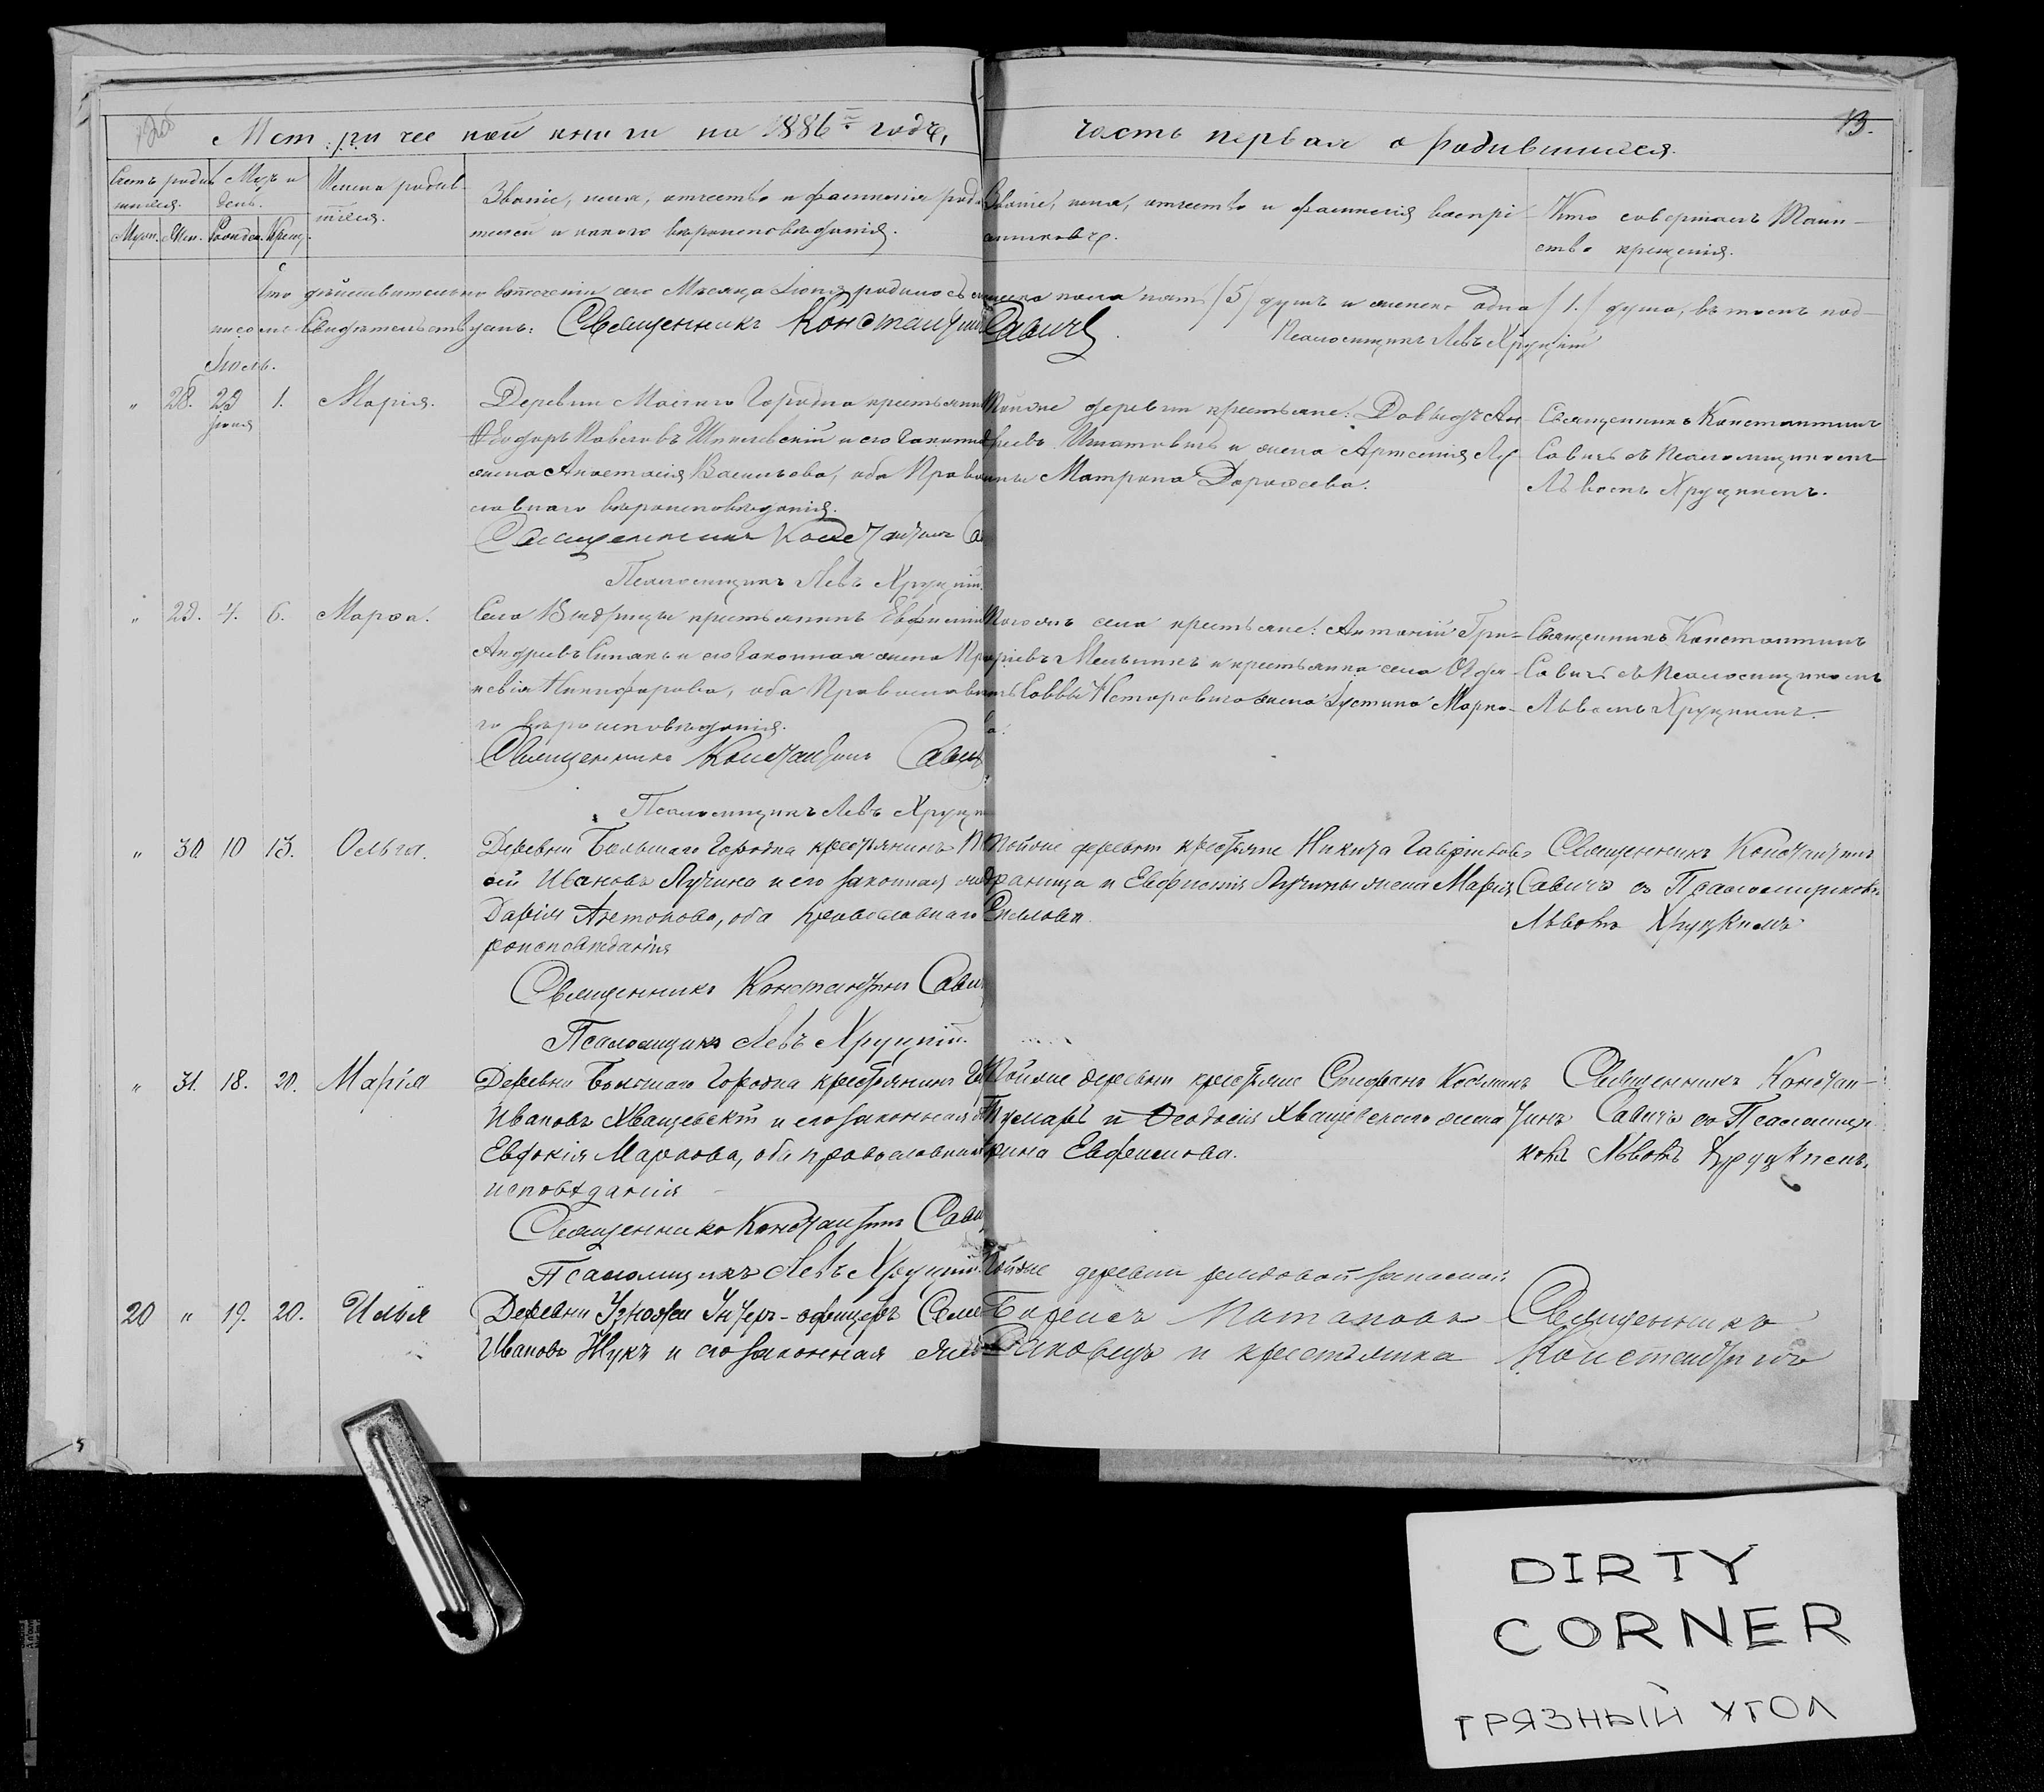 Метрической книги на 1886й годъ,
часть первая о родившихся.
13.
Счетъ родившихся.
Мѣс. и день.
Имена родившихся.
Званіе, имя, отчество и фамилія роди-
телей и какого вѣроисповѣданія.
Званіе, имя, отчество и фамилія воспрі-
емниковъ.
Кто совершалъ Таин-
ство крещенія.
Муж. Жен. Рожден. Крещ.
Что дѣйствительно въ теченіи сего Мѣсяца Іюня родилось мужеска пола пять /5/ душъ и женска одна /1./ душа, въ томъ под-
писомъ Свидѣтельствуемъ: Священникъ Константинъ Савичъ.
Псаломщикъ Левъ Хруцкій
Іюль.
" 28. 29 Іюня 1. Марія.
Деревни Малаго Городна крестьянинъ
Ѳеодоръ Павловъ и его законная
жена Анастасія Васильева, оба Право-
славнаго вѣроисповѣданія.
Священникъ Константинъ
Псаломщикъ Левъ Хруцкій.
Тойже деревни крестьяне: Давыдъ Ан-
дреевъ Игнатовичъ и жена Арсенія Лу-
чины Матрона Дорофеева.
Священникъ Константинъ
Савичъ съ Псаломщикомъ
Львомъ Хруцкимъ.
" 29. 4. 6. Марѳа.
Села Выдрицы крестьянинъ Евфимій
Андреевъ Синякъ и его законная жена
Никифорова, оба Православна-
го вѣроисповѣданія.
Священникъ Константинъ Савичъ
Псаломщикъ Левъ Хруцкій
Тогожъ села крестьяне: Антоній Гри-
горіевъ Мельникъ и крестьянина села
Саввы Несторовича жена Іустина Марко-
ва.
Священникъ Константинъ
Савичъ съ Псаломщикомъ
Львомъ Хруцкимъ.
" 30. 10 13. Ольга.
Деревни Большаго Городна крестьянинъ
Ивановъ Лучина и его законная жена
Дарія Антонова, оба православнаго вѣ-
роисповѣданія
Священникъ Константинъ Савичъ
Псаломщикъ Левъ Хруцкій.
Тойже деревни крестьяне Никита Гавріиловъ
и Евфимія Лучины жена Марія
Священникъ Константинъ
Савичъ съ Псаломщикомъ
Львомъ Хруцкимъ
" 31. 18. 20. Марія
Деревни Большаго Городна крестьянинъ
Ивановъ Хващевскій и его законная жена
Евдокія Маркова, оба православнаго
исповѣданія
Священникъ Константинъ Савичъ
Псаломщикъ Левъ Хруцкій
Тойже деревни крестьяне Стефанъ Косминъ
и Ѳеодосія Хващевскаго жена
Евфимова.
Священникъ Констан-
тинъ Савичъ съ Псаломщи-
комъ Львомъ Хруцкимъ.
20 " 19. 20. Илья
Деревни Узножи Унтеръ-офицеръ
Ивановъ Жукъ и его законная жена
Тойже деревни рядовой запасной
Борисъ Потаповъ
и крестьянка
Священникъ
Константинъ
DIRTY
CORNER
ГРЯЗНЫЙ УГОЛ